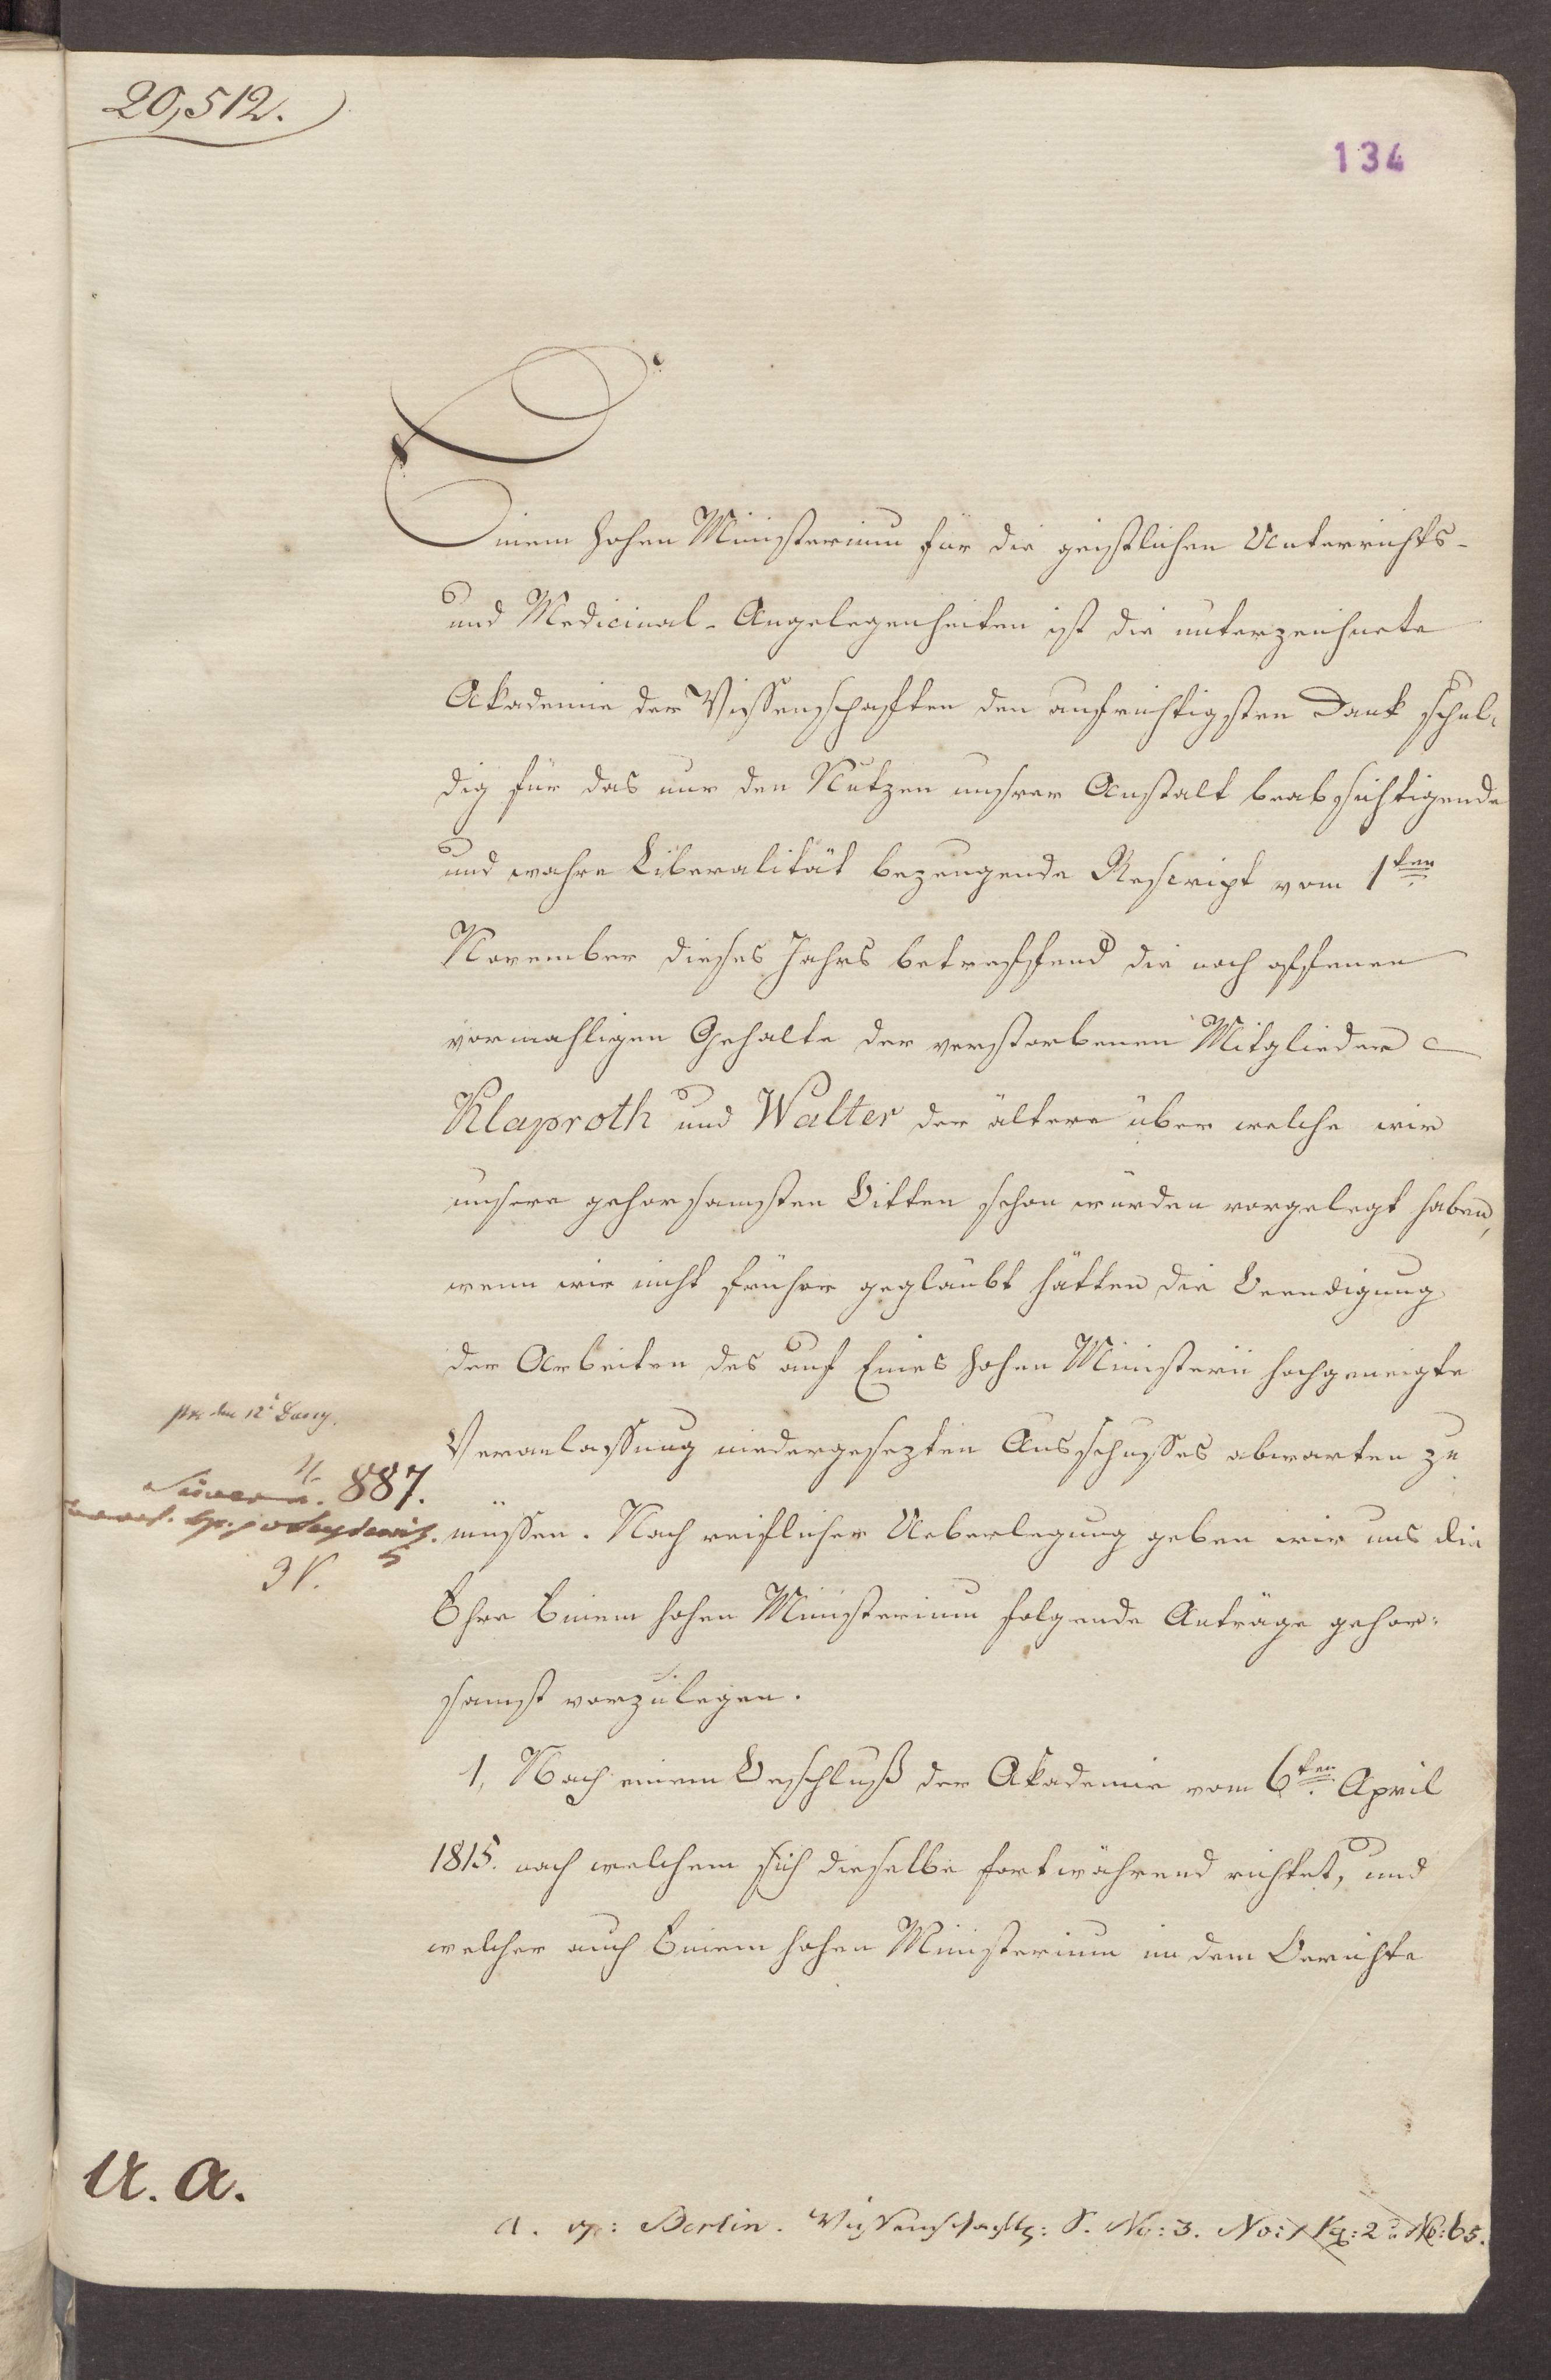 20,512.
134
Einem hohen Ministerium für die geistlichen Unterrichts-
und Medicinal-Angelegenheiten ist die unterzeichnete
Akademie der Wissenschaften den aufrichtigsten Dank schul-
dig für das nur den Nutzen unsrer Anstalt beabsichtigende
und wahre Liberalität bezeugende Rescript vom 1ten
November dieses Jahrs betreffend die noch offenen
vormahligen Gehalte der verstorbenen Mitglieder
Klaproth und Walter der ältere über welche wir
unsere gehorsamsten Bitten schon würden vorgelegt haben,
wenn wir nicht früher geglaubt hätten die Beendigung
der Arbeiten des auf Eines hohen Ministerii hochgeneigte
Veranlassung niedergesezten Ausschusses abwarten zu
müssen. Nach reiflicher Ueberlegung geben wir uns die
Ehre Einem hohen Ministerium folgende Anträge gehor:
samst vorzulegen.
1, Nach einem Beschluß der Akademie vom 6ten April
1815. nach welchem sich dieselbe fortwährend richtet, und
welcher auch Einem hohen Ministerium in dem Berichte
den 12
887.
U. a.
Berlin. Wissenschaftl: S. No: 3.